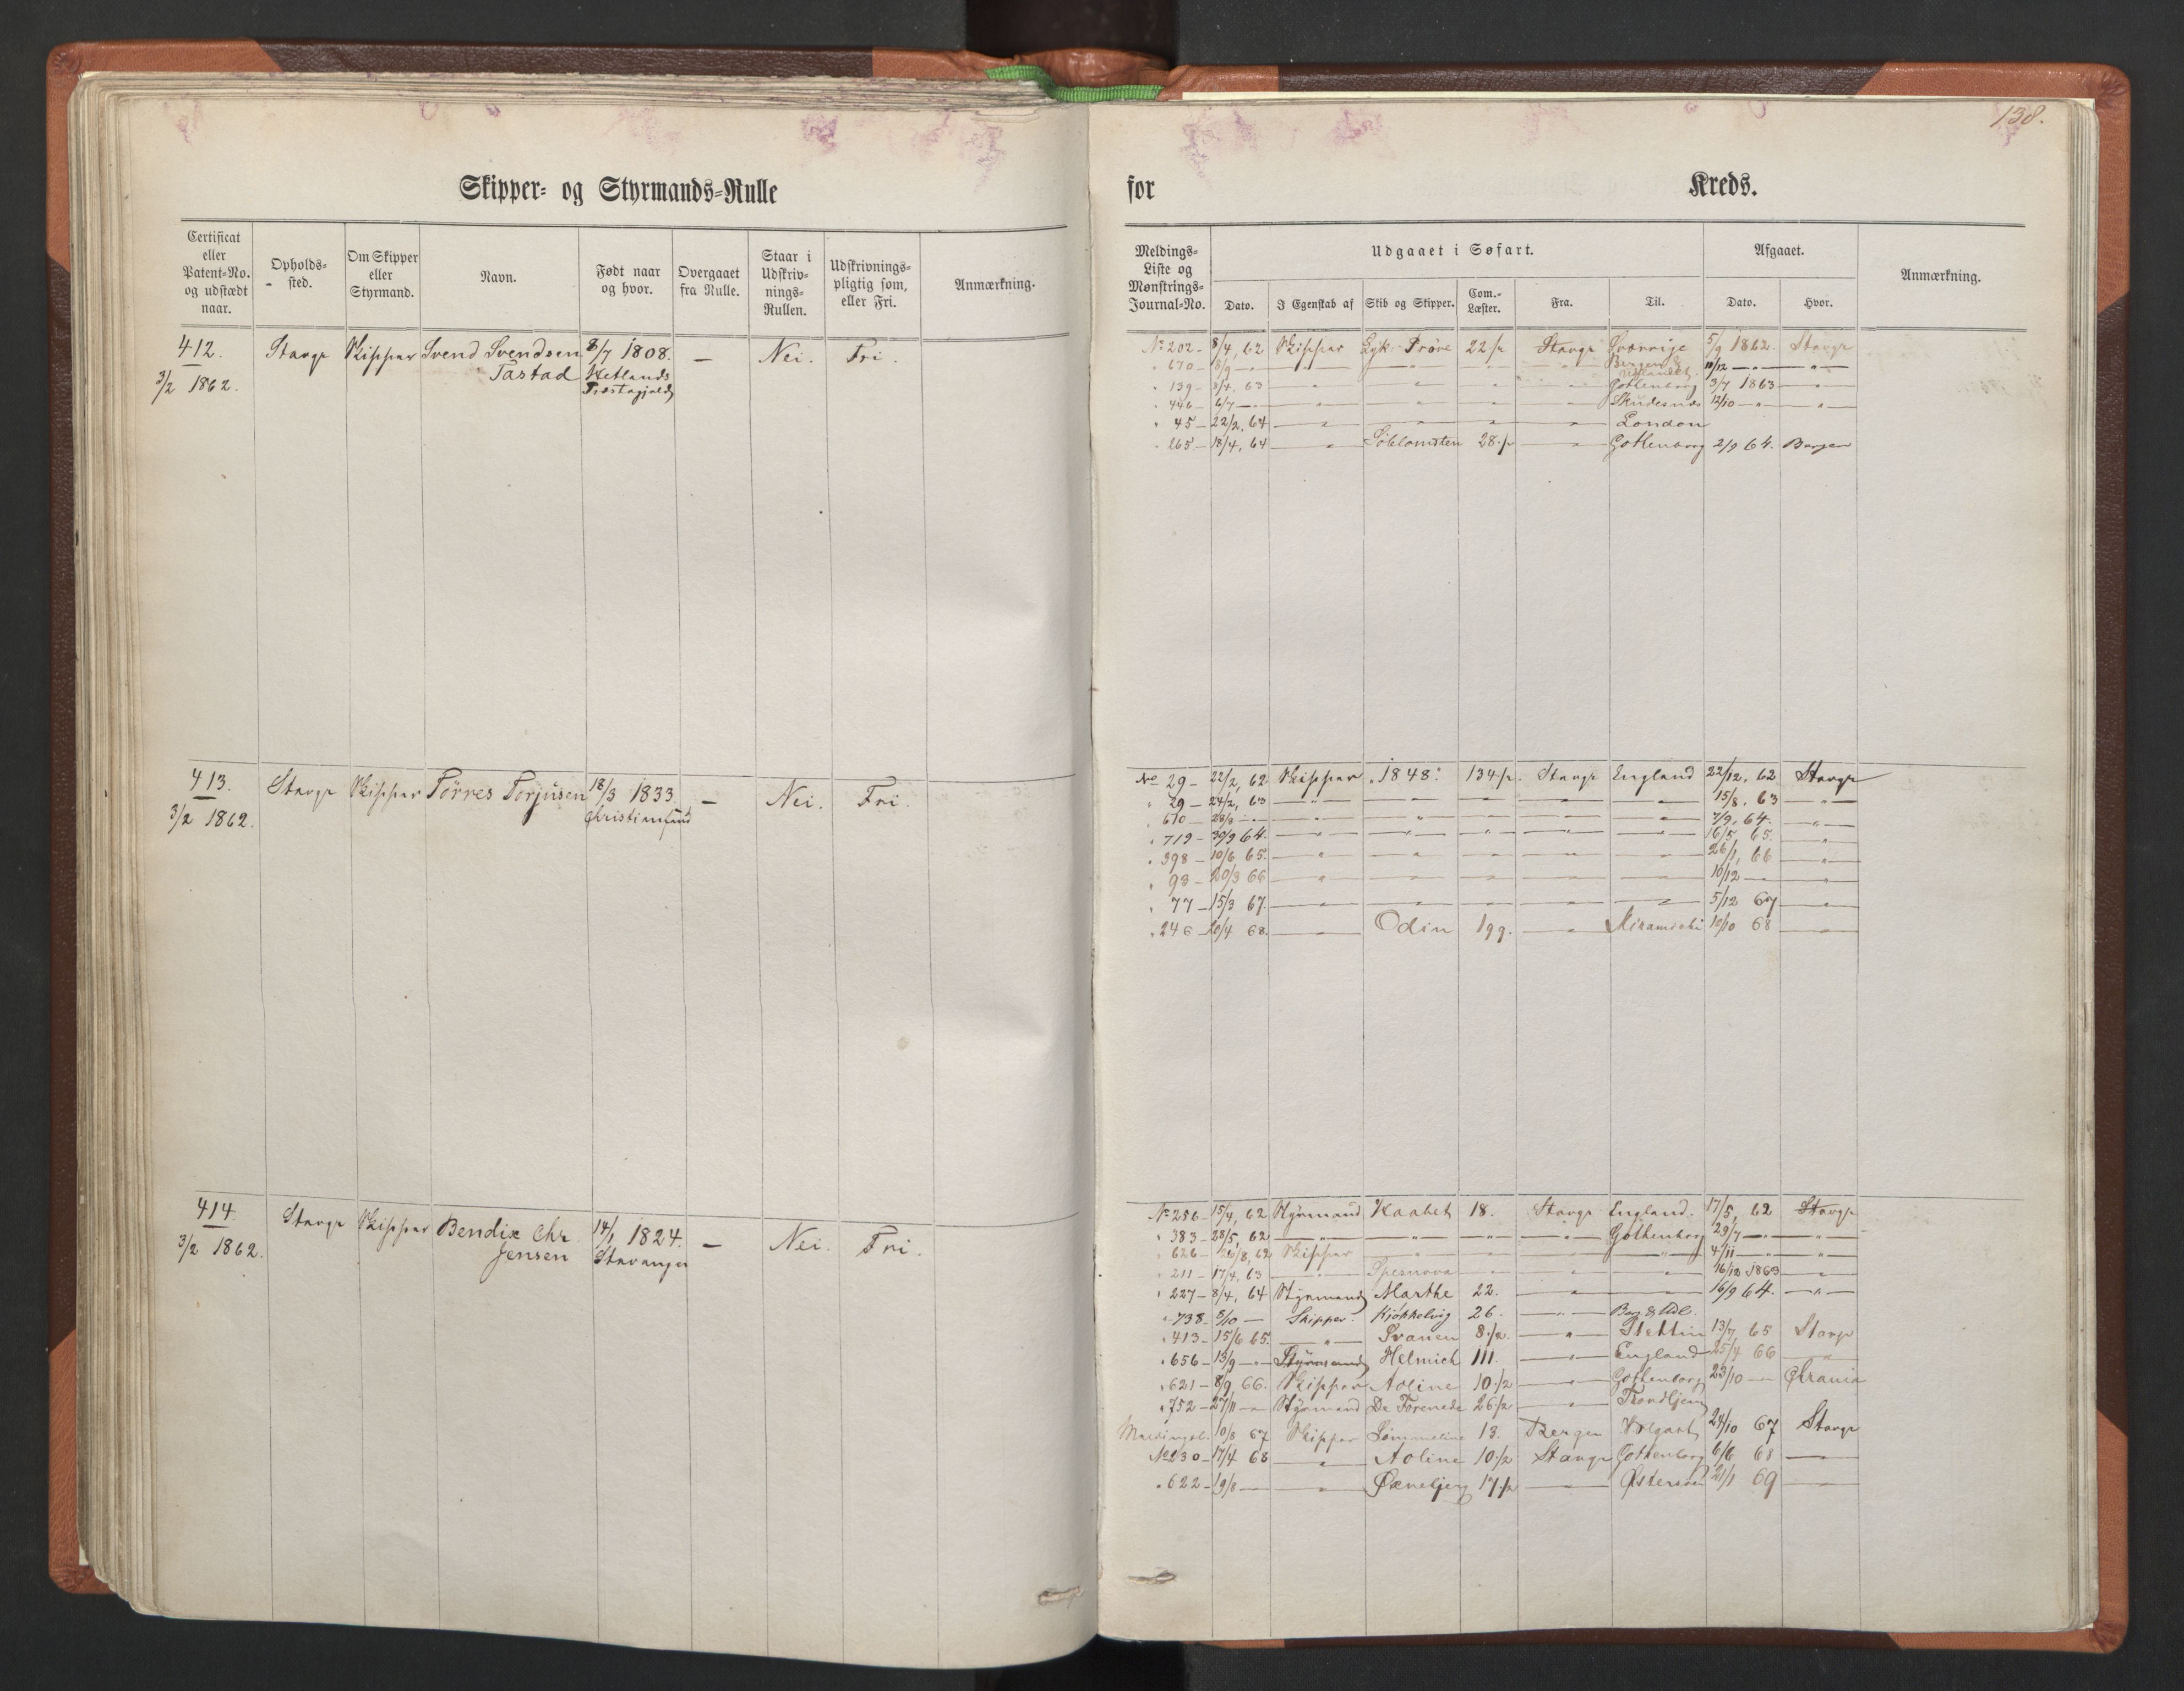 138.
Skipper- og Styrmands-Rulle
for Kreds.
Certificat eller Patent-No. og udstædt naar.
Opholds-sted.
Om Skipper eller Styrmand.
Navn.
Født naar og hvor.
Overgaaet fra Rulle.
Staar i Udskriv-nings-Rullen.
Udskrivnings-pligtig som, eller Fri.
Anmærkning.
Meldings-Liste og Mønstrings-Journal-No.
Udgaaet i Søfart.
Dato.
I Egenskab af
Skib og Skipper.
Com.-Læster.
Fra.
Til.
Afgaaet.
Dato.
Hvor.
Anmærkning.
412. Stavgr Skipper Svend Svendsen 8/7 1808. — Nei. Fri.
3/2 1862. Tastad Hetlands Præstegjæld
No 202 - 8/4, 62 Skipper Lyk. Prøve 22 1/2 Stavgr Sverrige 5/9 1862. Stavgr
" 670 - 8/9 — " — " — " — " Bergen & Udlandet 11/12 — " — " —
" 139 - 8/4, 63 — " — " — " — " Gottenborg 3/7 1863 — " —
" 446 - 6/7 — " — " — " — " Skudesnes 12/10 — " — " —
" 45 - 22/2, 64 — " — " — " — " London
" 265 - 18/4, 64 — " — Söblomsten 28 1/2 — " — Gottenborg 2/9 64. Bergen
413. Stavgr Skipper Törres Torjusen 18/3 1833. — Nei. Fri.
3/2 1862. Christiansund
No 29 - 22/2, 62 Skipper "1848" 134 1/2. Stavgr England 22/12, 62 Stavgr
" 29 - 24/2, 63 — " — " — " — " — " 15/8, 63 — " —
" 610 - 28/8 — " — " — " — " — " 7/9, 64. — " —
" 719 - 30/9 64. — " — " — " — " — " 16/5, 65. — " —
" 398 - 10/6 65. — " — " — " — " — " 26/1, 66 — " —
" 93 - 20/3 66 — " — " — " — " — " 10/12 — " — " —
" 77 - 15/3 67. — " — " — " — " — " 5/12 67 — " —
" 246 - 20/4 68. — " — Odin 199. — " — Miramichi 10/10 68 — " —
414. Stavgr Skipper Bendix Chr. 14/1 1824. — Nei. Fri.
3/2 1862. Jensen Stavanger
No 256 - 15/4, 62 Styrmand Haabet 18. Stavgr England. 17/5, 62 Stavgr
" 383 - 28/5, 62 — " — " — " — " Gothenborg 29/7 — " — " —
" 626 - 26/8, 62 Skipper — " — " — " — " 4/11 — " — " —
" 211 - 17/4, 63 — " — Spesnova — " — " — " 16/12 1863 — " —
" 227 - 8/4, 64 Styrmand Marthe 22. — " — " 16/9 64. — " —
" 738 - 5/10 — Skipper. Kjökkelvig 26. — " — Berg. & Udl.
" 413 - 15/6 65. — " — Svanen 8 1/2. — " — Stettin 13/7, 65 Stavgr
" 656 - 13/9 — " — Styrmand Helmich 111. — " — England 25/4 66 — " —
" 621 - 8/9, 66. Skipper Aoline 10 1/2 — " — Gottenborg 23/10 — " — Chrania
" 752 - 27/11 — " — Styrmand De Forenede 26 1/2 — " — Trondhjem
Meldingsl. 10/8 67 Skipper 13. Bergen Wolgast 24/10 67 Stavgr
No 230 - 17/4 68 — " — Aoline 10 1/2 Stavgr Gottenborg 6/6 68 —
" 622 - 19/8 — " — 17 1/2 — Østersøen 21/1 69 —